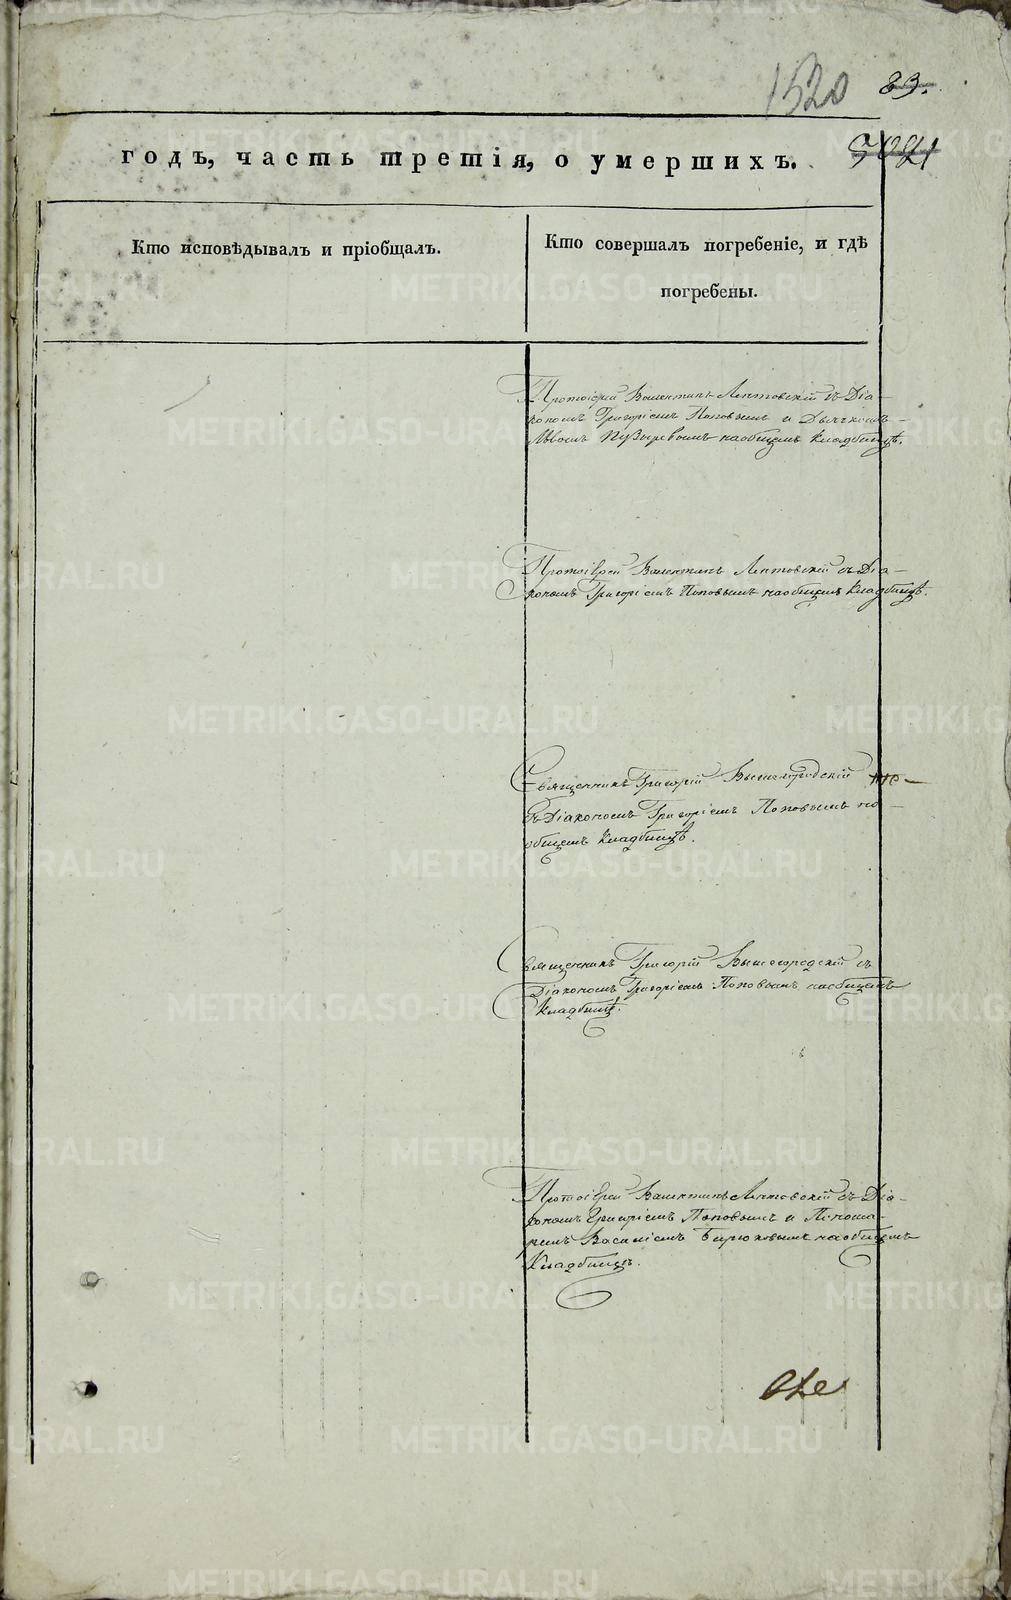 1520 83.
годъ, часть третія, о умершихъ.
Кто исповѣдывалъ и пріобщалъ.
Кто совершалъ погребеніе, и гдѣ
погребены.
Протоіерей Валентинъ Лентовскій съ Діа-
кономъ Григоріемъ Поповымъ и Дьячкомъ
Львомъ Пузыревымъ на общемъ кладбищѣ.
Протоіерей Валентинъ Лентовскій съ Діа-
кономъ Григоріемъ Поповымъ на общемъ кладбищѣ.
Священникъ Григорій Вышегородскій
съ Діакономъ Григоріемъ Поповымъ на
общемъ Кладбищѣ.
Священникъ Григорій Вышегородскій съ
Діакономъ Григоріемъ Поповымъ на общемъ
Кладбищѣ.
Протоіерей Валентинъ Лентовскій съ Діа-
кономъ Григоріемъ Поповымъ и Понома-
ремъ Василіемъ Бирюковымъ на общемъ
Кладбищѣ.
METRIKI.GASO-URAL.RU